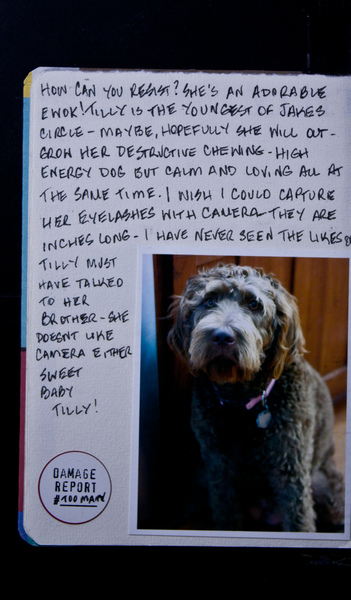 HOW CAN YOU RESIST? SHE'S AN ADORABLE
EWOK! TILLY IS THE YOUNGEST OF JAKES
CIRCLE - MAYBE, HOPEFULLY SHE WILL OUT-
GROW HER DESTRUCTIVE CHEWING - HIGH
ENERGY DOG BUT CALM AND LOVING ALL AT
THE SAME TIME. I WISH I COULD CAPTURE
HER EYELASHES WITH CAMERA - THEY ARE
INCHES LONG - I HAVE NEVER SEEN THE LIKES
TILLY MUST
HAVE TALKED
TO HER
BROTHER - SHE
DOESN'T LIKE
CAMERA EITHER
SWEET
BABY
TILLY!
DAMAGE
REPORT
#TOO MANY